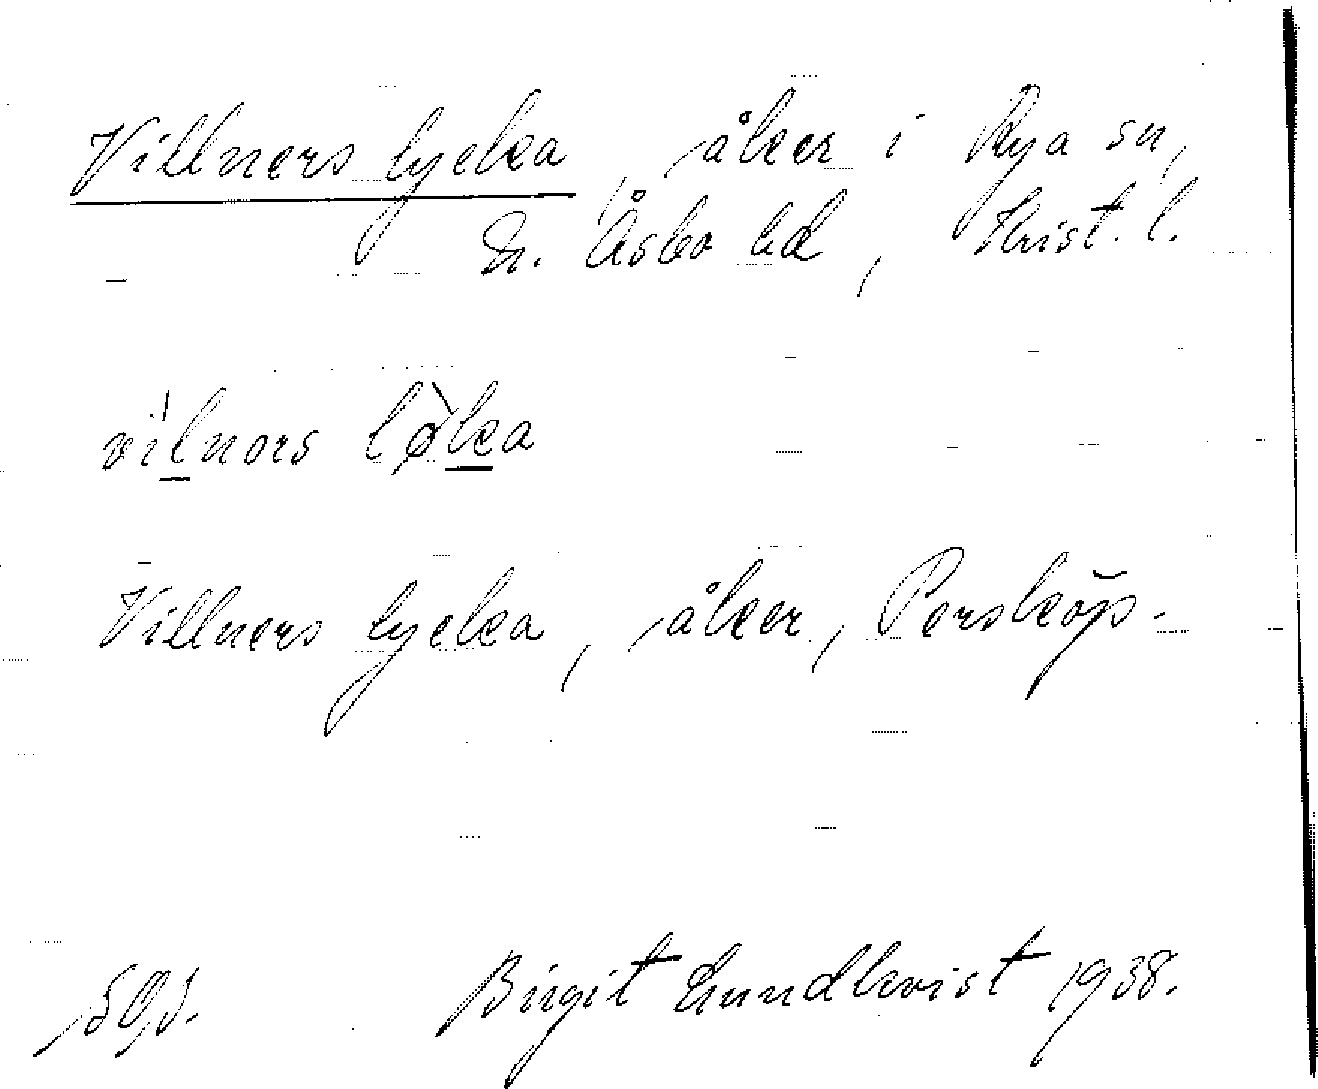 Villners lycka, åker i Rya sn,
N. Åsbo hd, Krist. l.
vilnors løka
Villners lycka, åker, Persköp.
Birgit Lundkvist 1938.